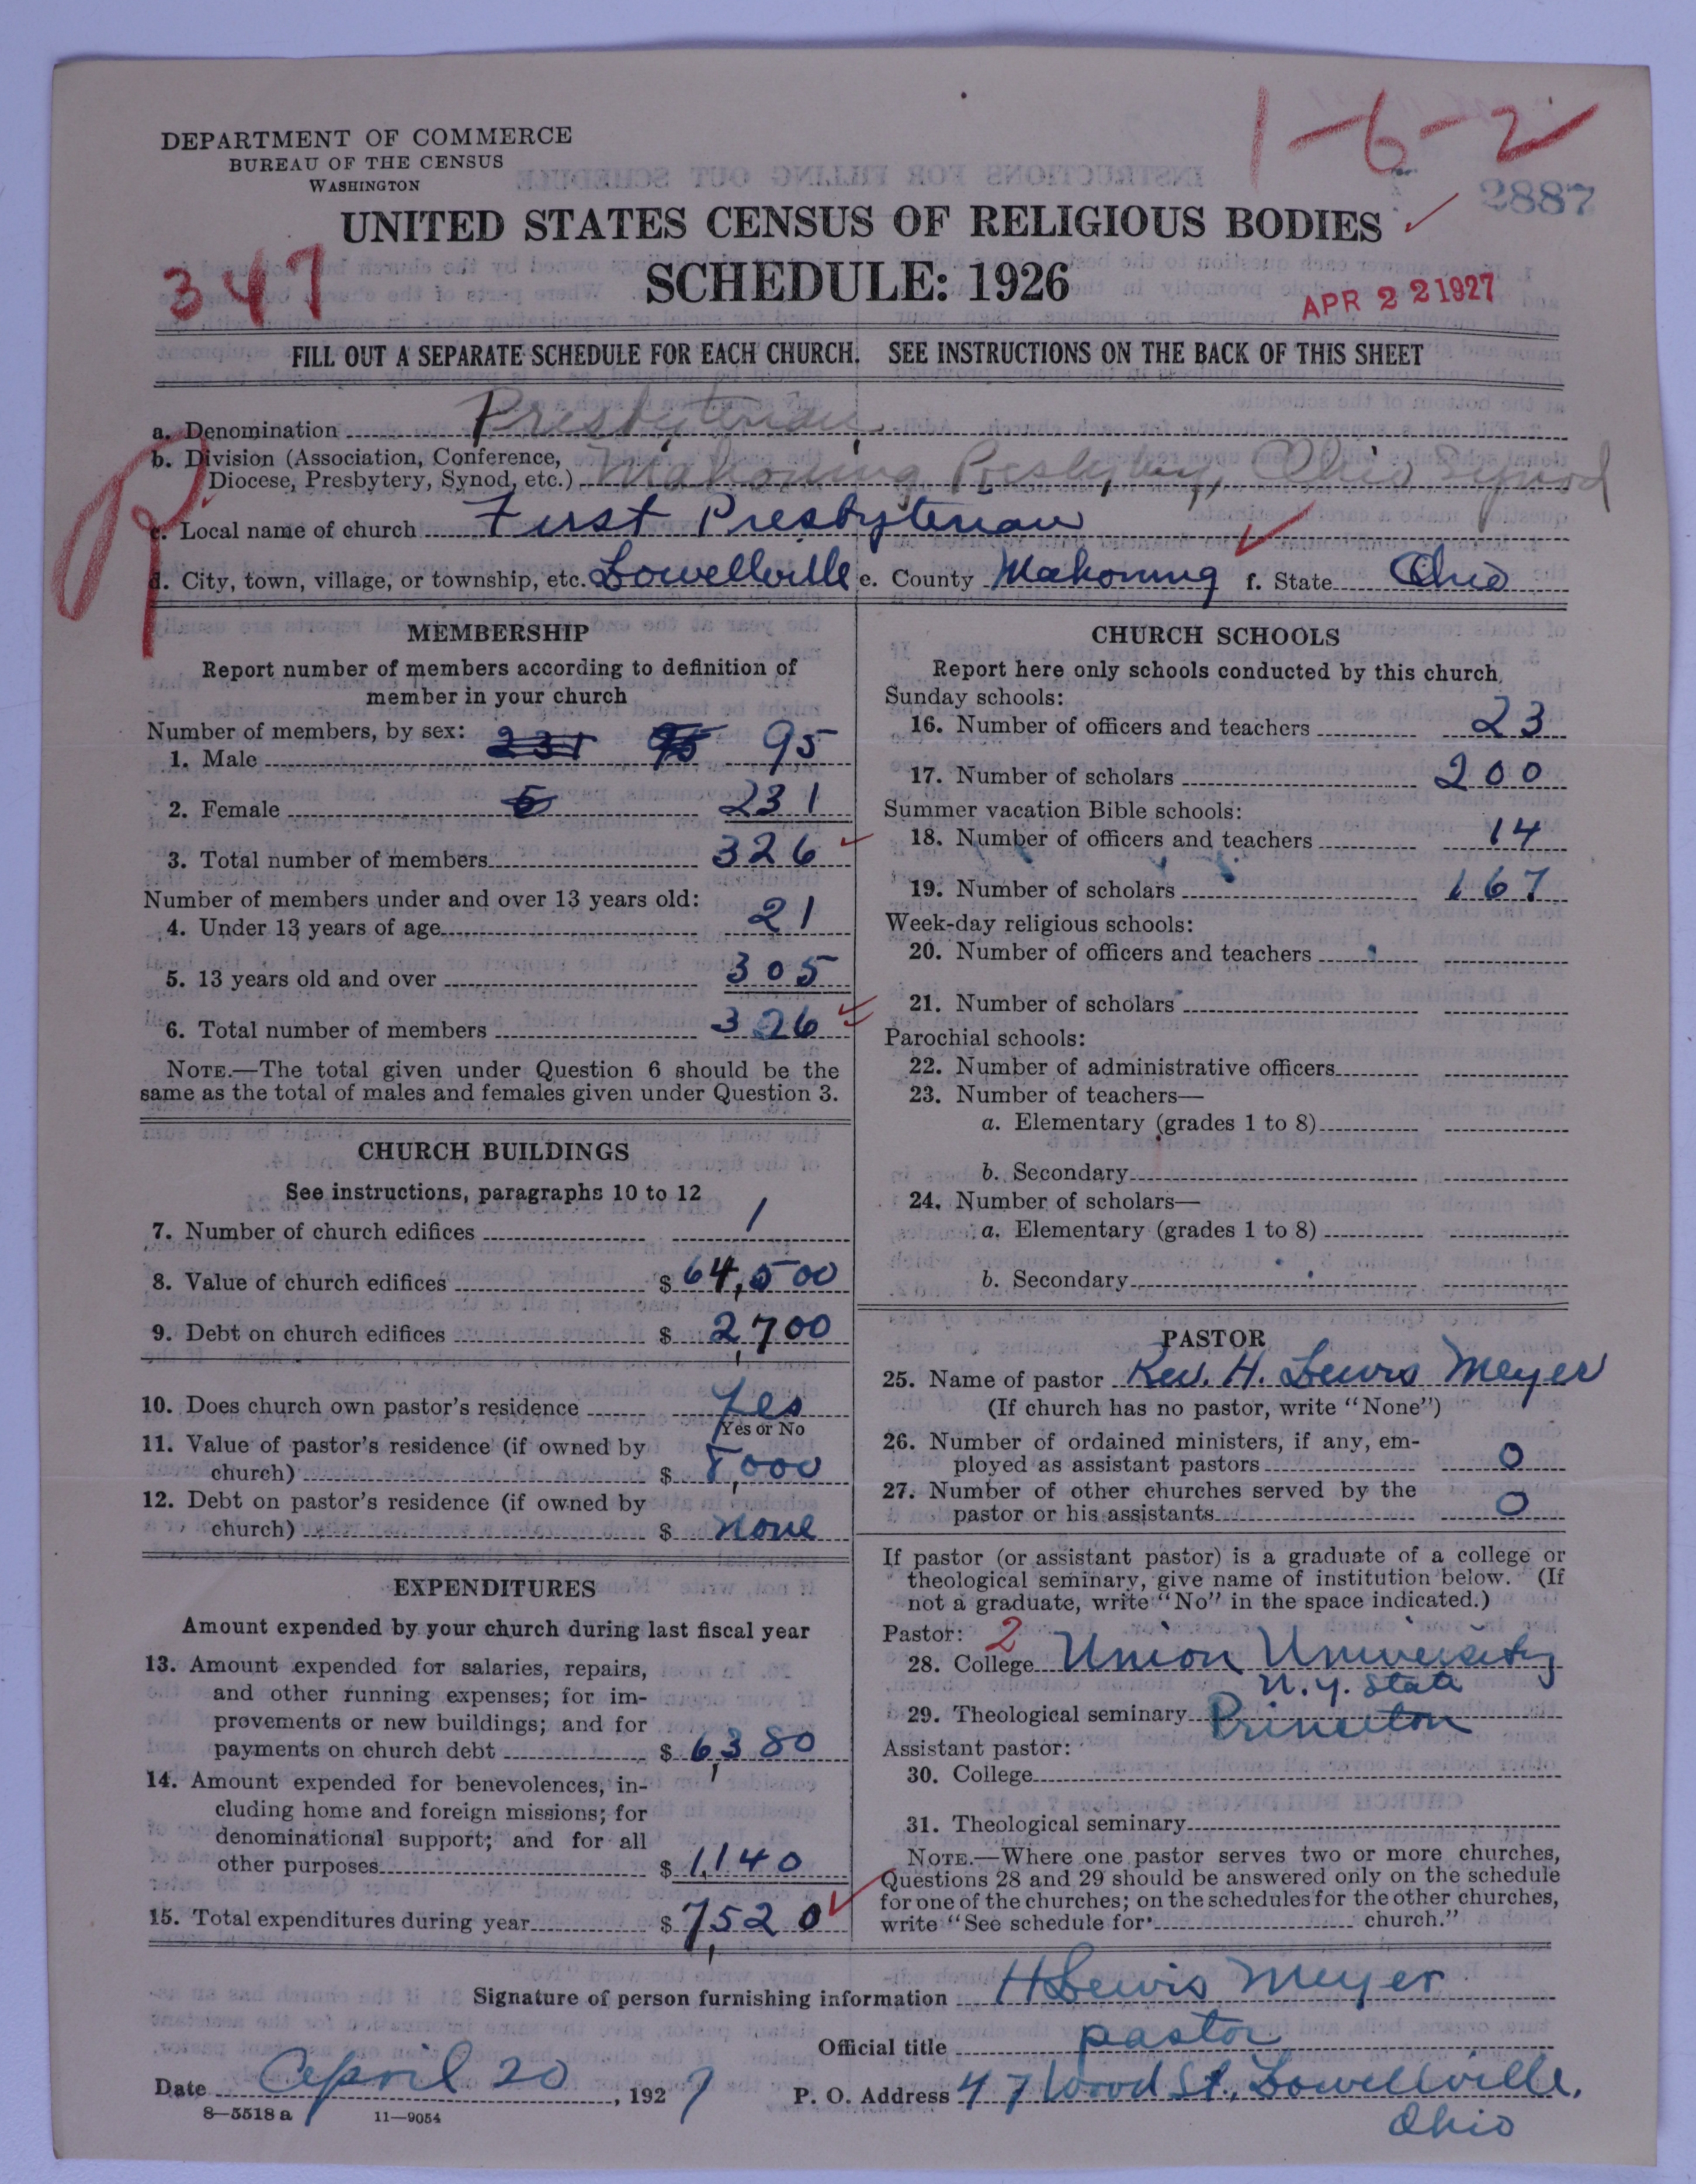 1-6-2
DEPARTMENT OF COMMERCE
BUREAU OF THE CENSUS
WASHINGTON
2887
UNITED STATES CENSUS OF RELIGIOUS BODIES
347
SCHEDULE: 1926
APR 22 1927
FILL OUT A SEPARATE SCHEDULE FOR EACH CHURCH. SEE INSTRUCTIONS ON THE BACK OF THIS SHEET
a. Denomination Presbyterian
b. Division (Association, Conference,
Diocese, Presbytery, Synod, etc.) Mahoning Presbytery, Ohio Synod
c. Local name of church First Presbyterian
d. City, town, village, or township, etc. Lowellville e. County Mahoning f. State Ohio
MEMBERSHIP
Report number of members according to definition of
member in your church
Number of members, by sex:
1. Male 231 95 95
2. Female 231
3. Total number of members 326
Number of members under and over 13 years old:
4. Under 13 years of age 21
5. 13 years old and over 305
6. Total number of members 326
NOTE.—The total given under Question 6 should be the
same as the total of males and females given under Question 3.
CHURCH BUILDINGS
See instructions, paragraphs 10 to 12
7. Number of church edifices 1
8. Value of church edifices $ 64,500
9. Debt on church edifices $ 2,700
10. Does church own pastor's residence Yes
Yes or No
11. Value of pastor's residence (if owned by
church) $ 8,000
12. Debt on pastor's residence (if owned by
church) $ none
EXPENDITURES
Amount expended by your church during last fiscal year
13. Amount expended for salaries, repairs,
and other running expenses; for im-
provements or new buildings; and for
payments on church debt $ 6,380
14. Amount expended for benevolences, in-
cluding home and foreign missions; for
denominational support; and for all
other purposes $ 1,140
15. Total expenditures during year $ 7,520
CHURCH SCHOOLS
Report here only schools conducted by this church
Sunday schools:
16. Number of officers and teachers 23
17. Number of scholars 200
Summer vacation Bible schools:
18. Number of officers and teachers 14
19. Number of scholars 167
Week-day religious schools:
20. Number of officers and teachers
21. Number of scholars
Parochial schools:
22. Number of administrative officers
23. Number of teachers—
a. Elementary (grades 1 to 8)
b. Secondary
24. Number of scholars—
a. Elementary (grades 1 to 8)
b. Secondary
PASTOR
25. Name of pastor Rev. H. Lewis Meyer
(If church has no pastor, write "None")
26. Number of ordained ministers, if any, em-
ployed as assistant pastors 0
27. Number of other churches served by the
pastor or his assistants 0
If pastor (or assistant pastor) is a graduate of a college or
theological seminary, give name of institution below. (If
not a graduate, write "No" in the space indicated.)
Pastor: 2
28. College Union University
N.Y. State
29. Theological seminary Princeton
Assistant pastor:
30. College
31. Theological seminary
NOTE.—Where one pastor serves two or more churches,
Questions 28 and 29 should be answered only on the schedule
for one of the churches; on the schedules for the other churches,
write "See schedule for church."
Signature of person furnishing information H Lewis Meyer
Official title pastor
Date April 20, 1927 P. O. Address 47 Wood St., Lowellville,
Ohio
8—5518 a 11—9054